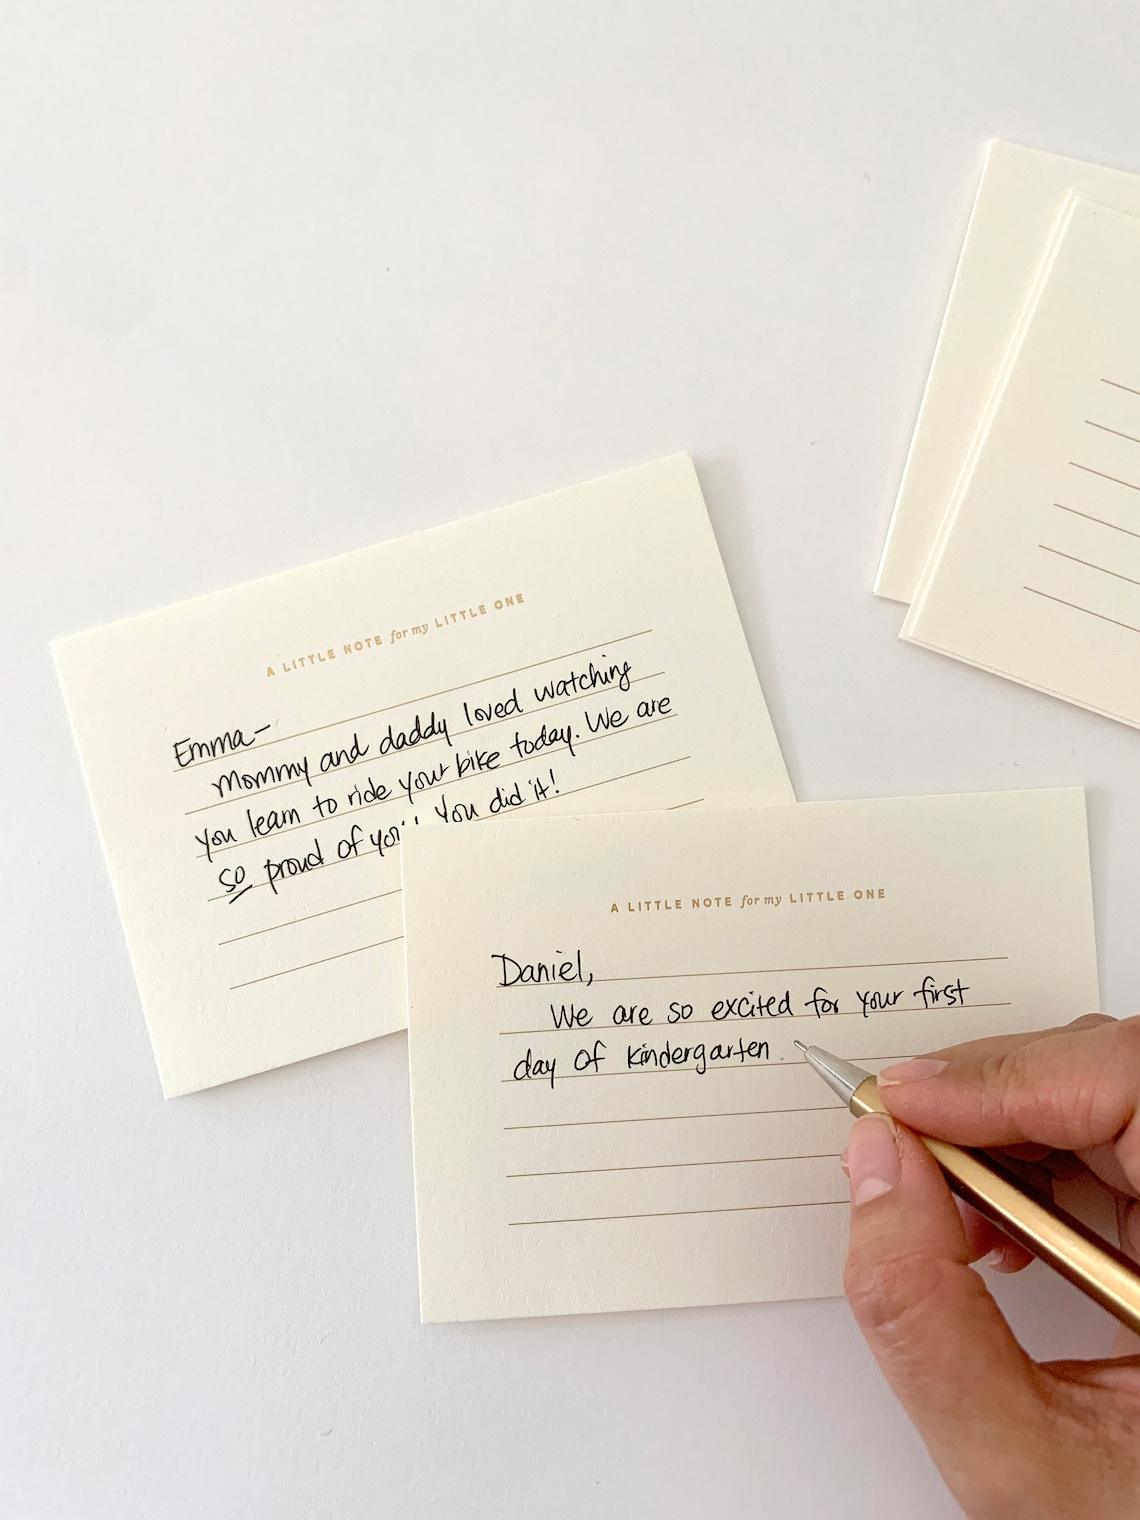 A LITTLE NOTE for my LITTLE ONE
Emma-
Mommy and daddy loved watching
you learn to ride your bike today. We are
so proud of you! You did it!
A LITTLE NOTE for my LITTLE ONE
Daniel,
We are so excited for your first
day of kindergarten